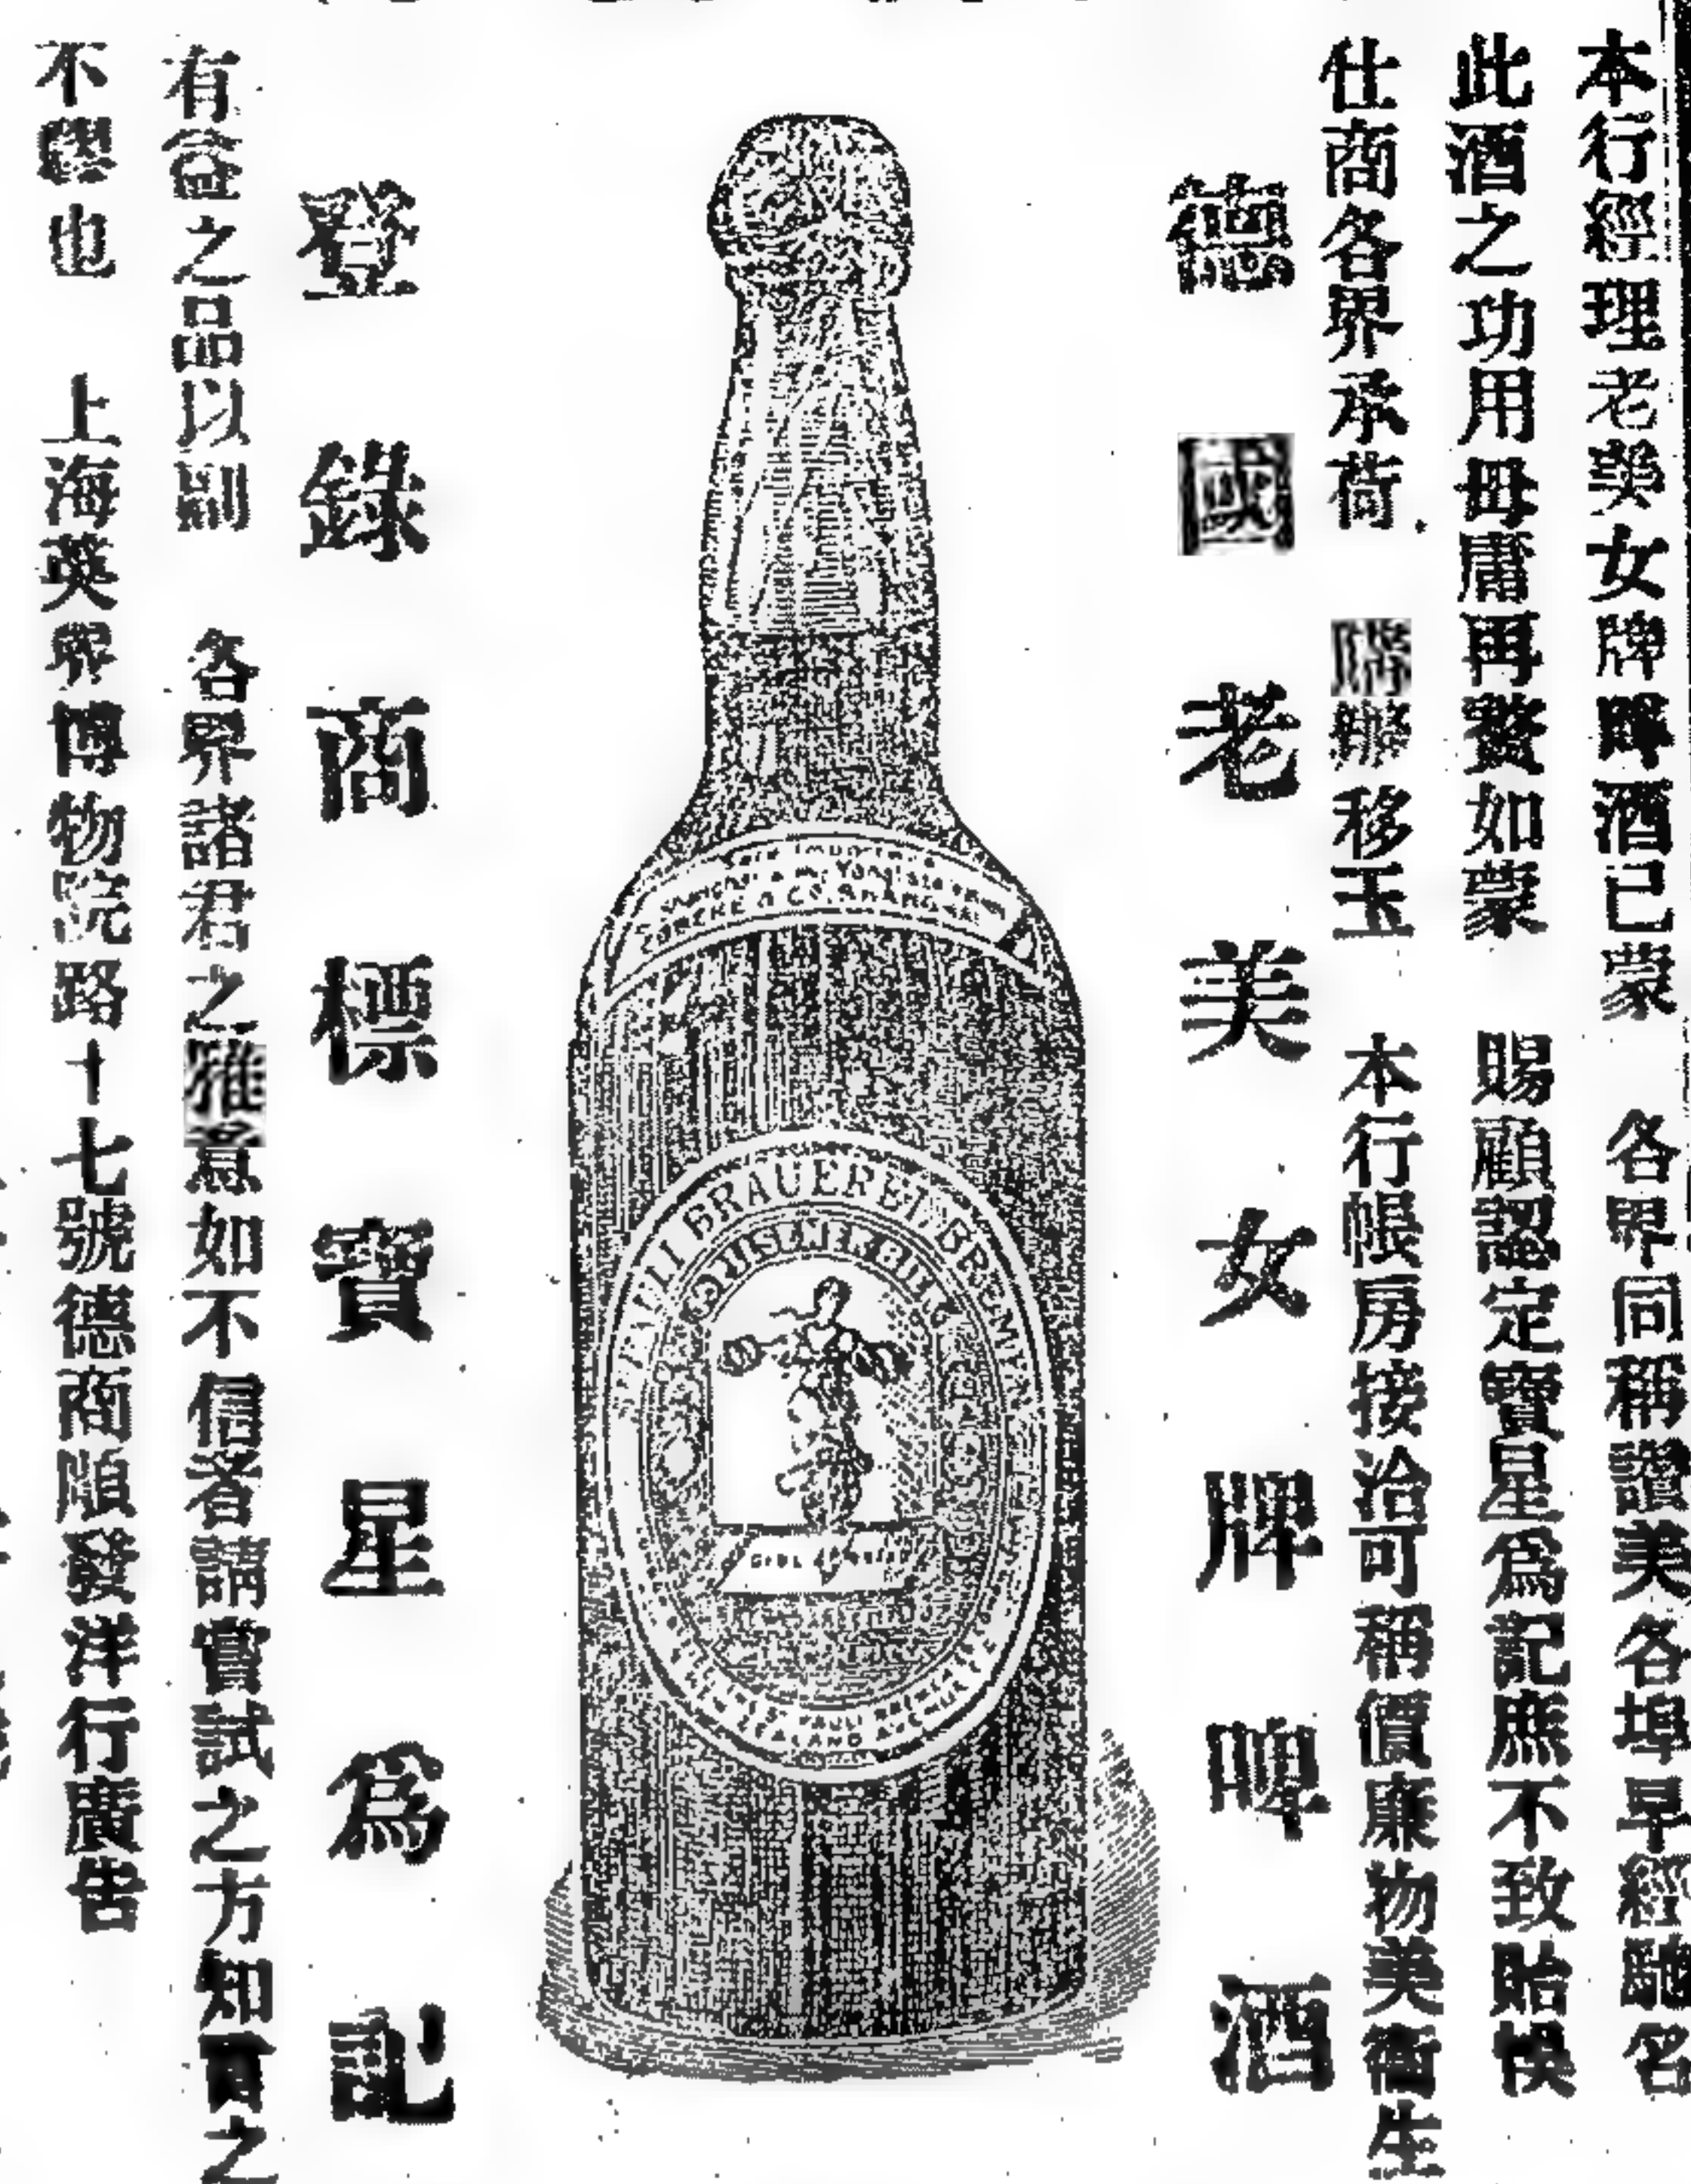 本行經理老美女牌啤酒已蒙　各界同稱讚美各埠早經馳名
此酒之功用毋庸再贅如蒙　賜顧認定寶星爲記庶不致貽悞
仕商各界承荷　購辦移玉　本行帳房接洽可稱價廉物美衛生
德國老美女牌啤酒
CORCKE & CO. SHANGHAI
ST. PAULI BRAUEREI, BREMEN
GIRL BRAND
登錄商標寶星爲記
有益之品以副　各界諸君之雅意如不信者請嘗試之方知言之
不謬也　上海英界博物院路十七號德商順發洋行廣告